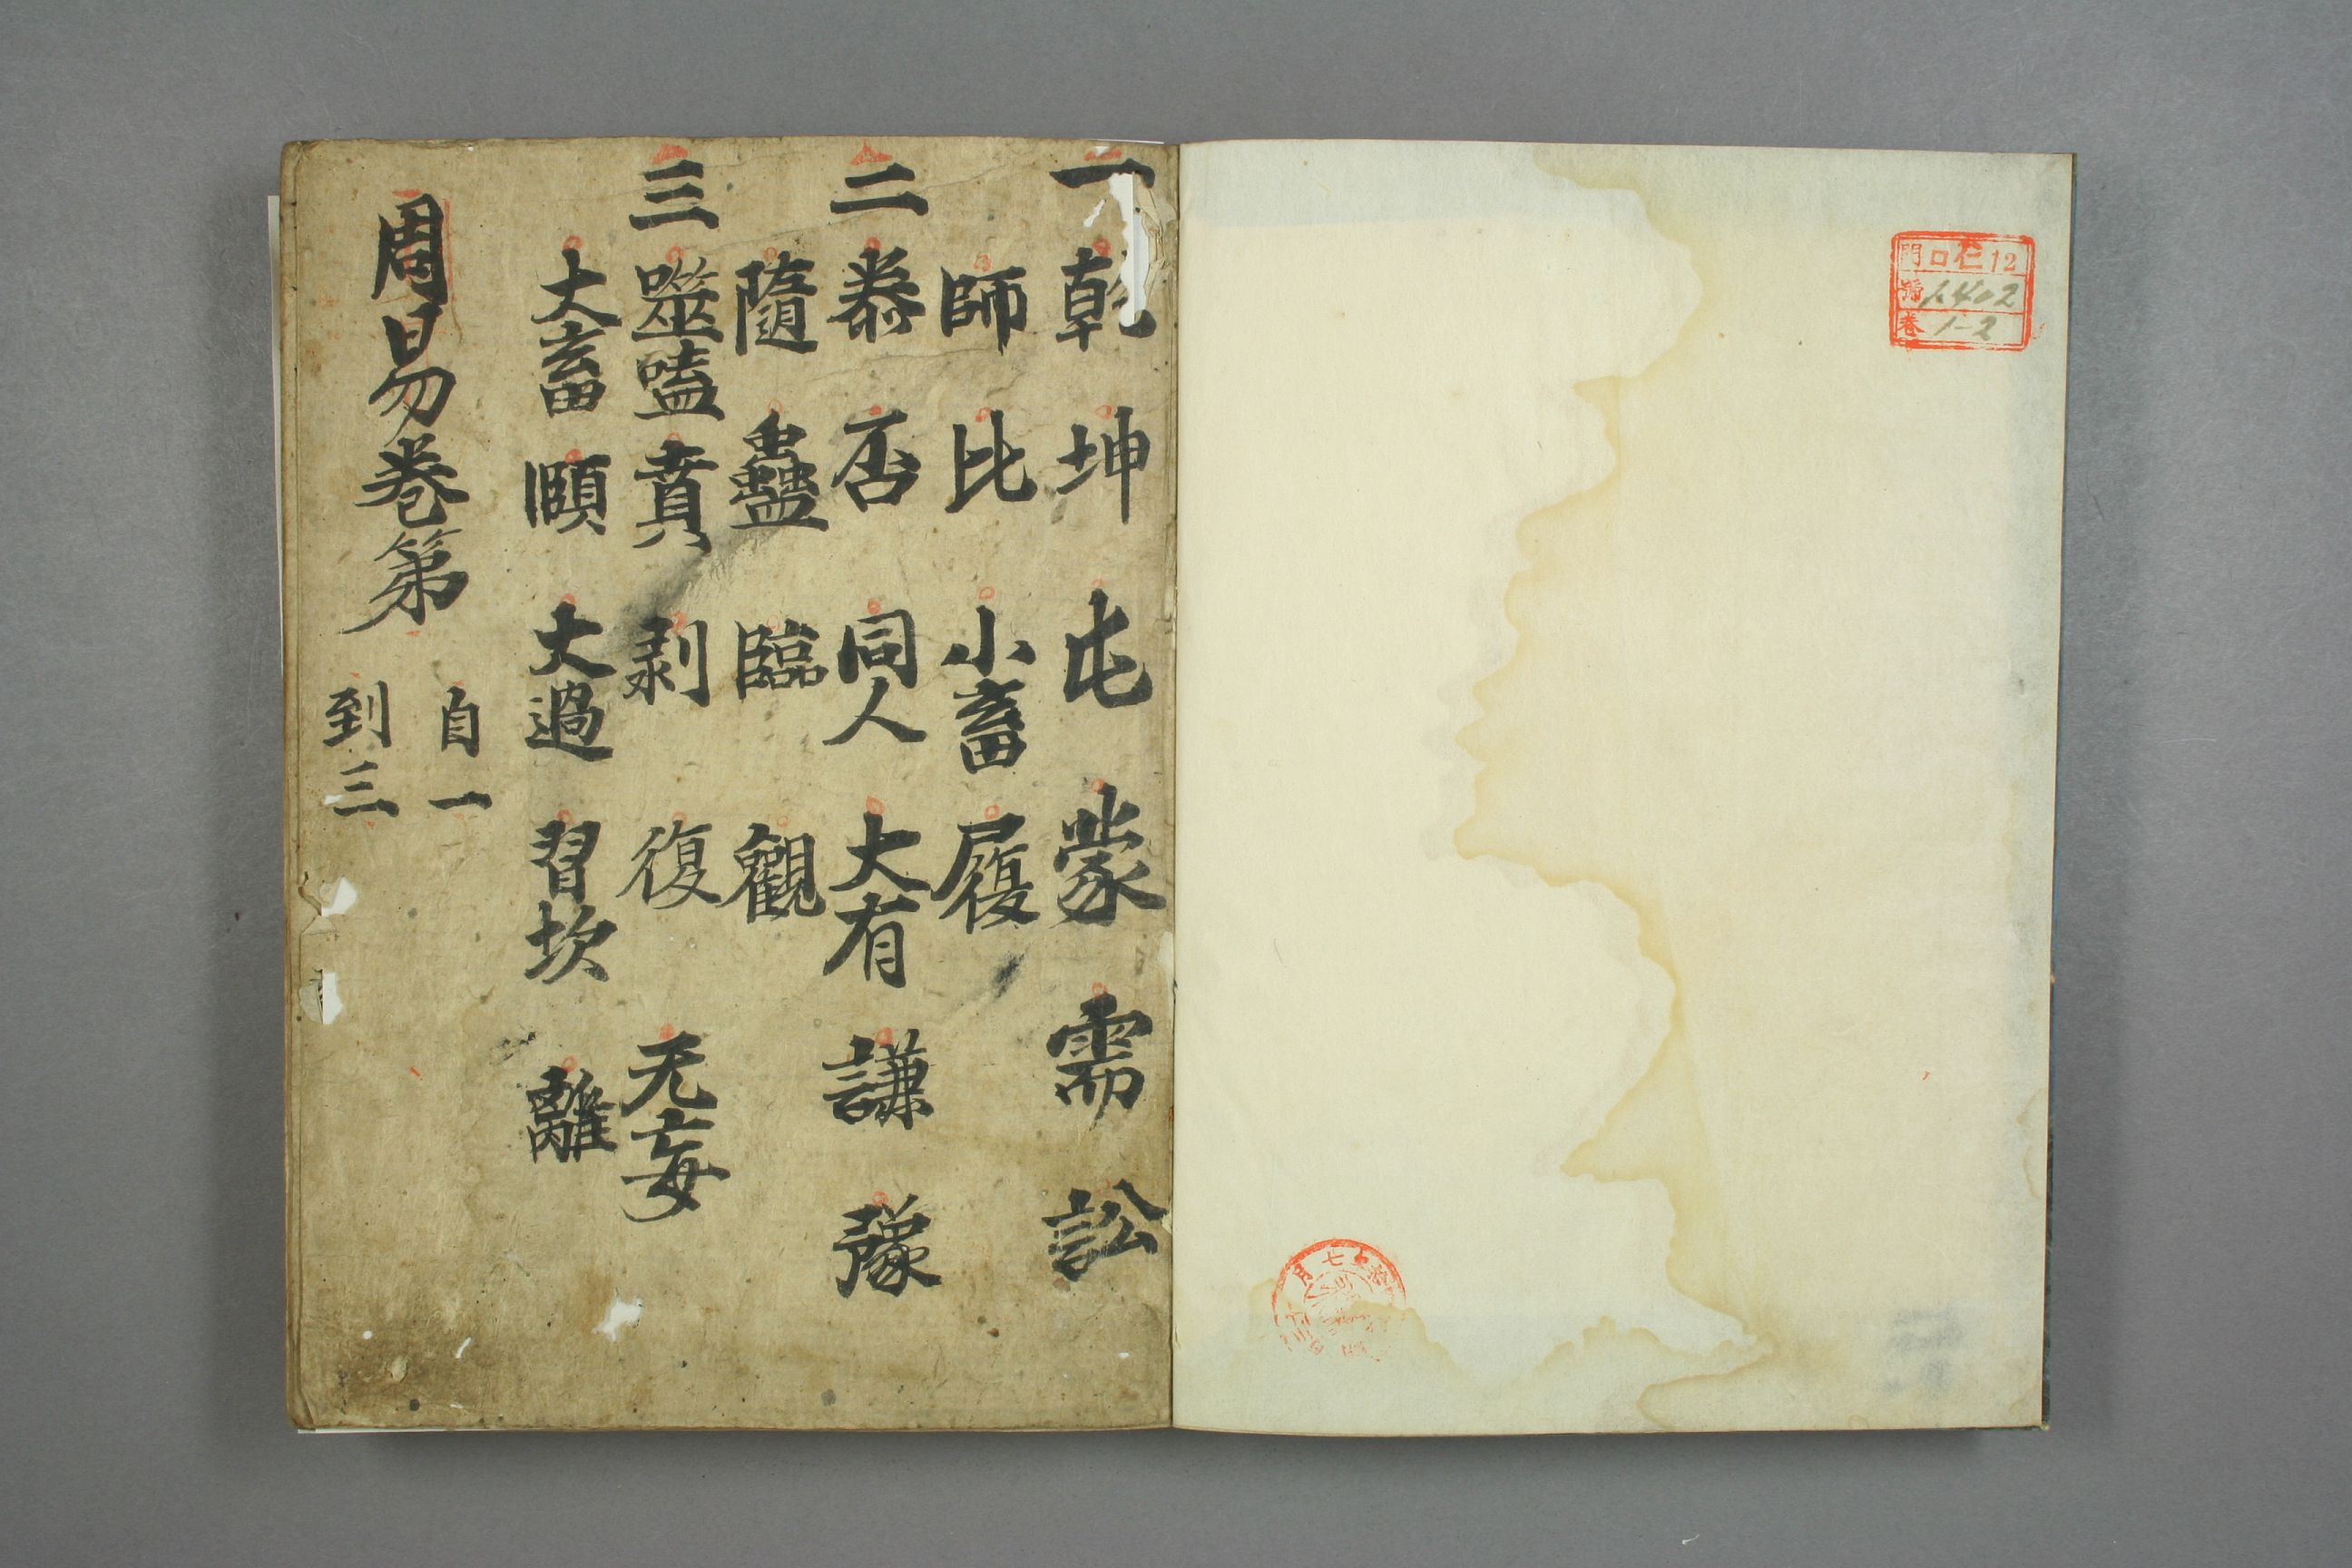 門口仁12
號 1402
卷 1-2
一 乾 坤 屯 蒙 需 訟
師 比 小畜 履
二 泰 否 同人 大有 謙 豫
隨 蠱 臨 觀
三 噬嗑 賁 剥 復 无妄
大畜 頤 大過 習坎 離
周易卷第
自一
到三